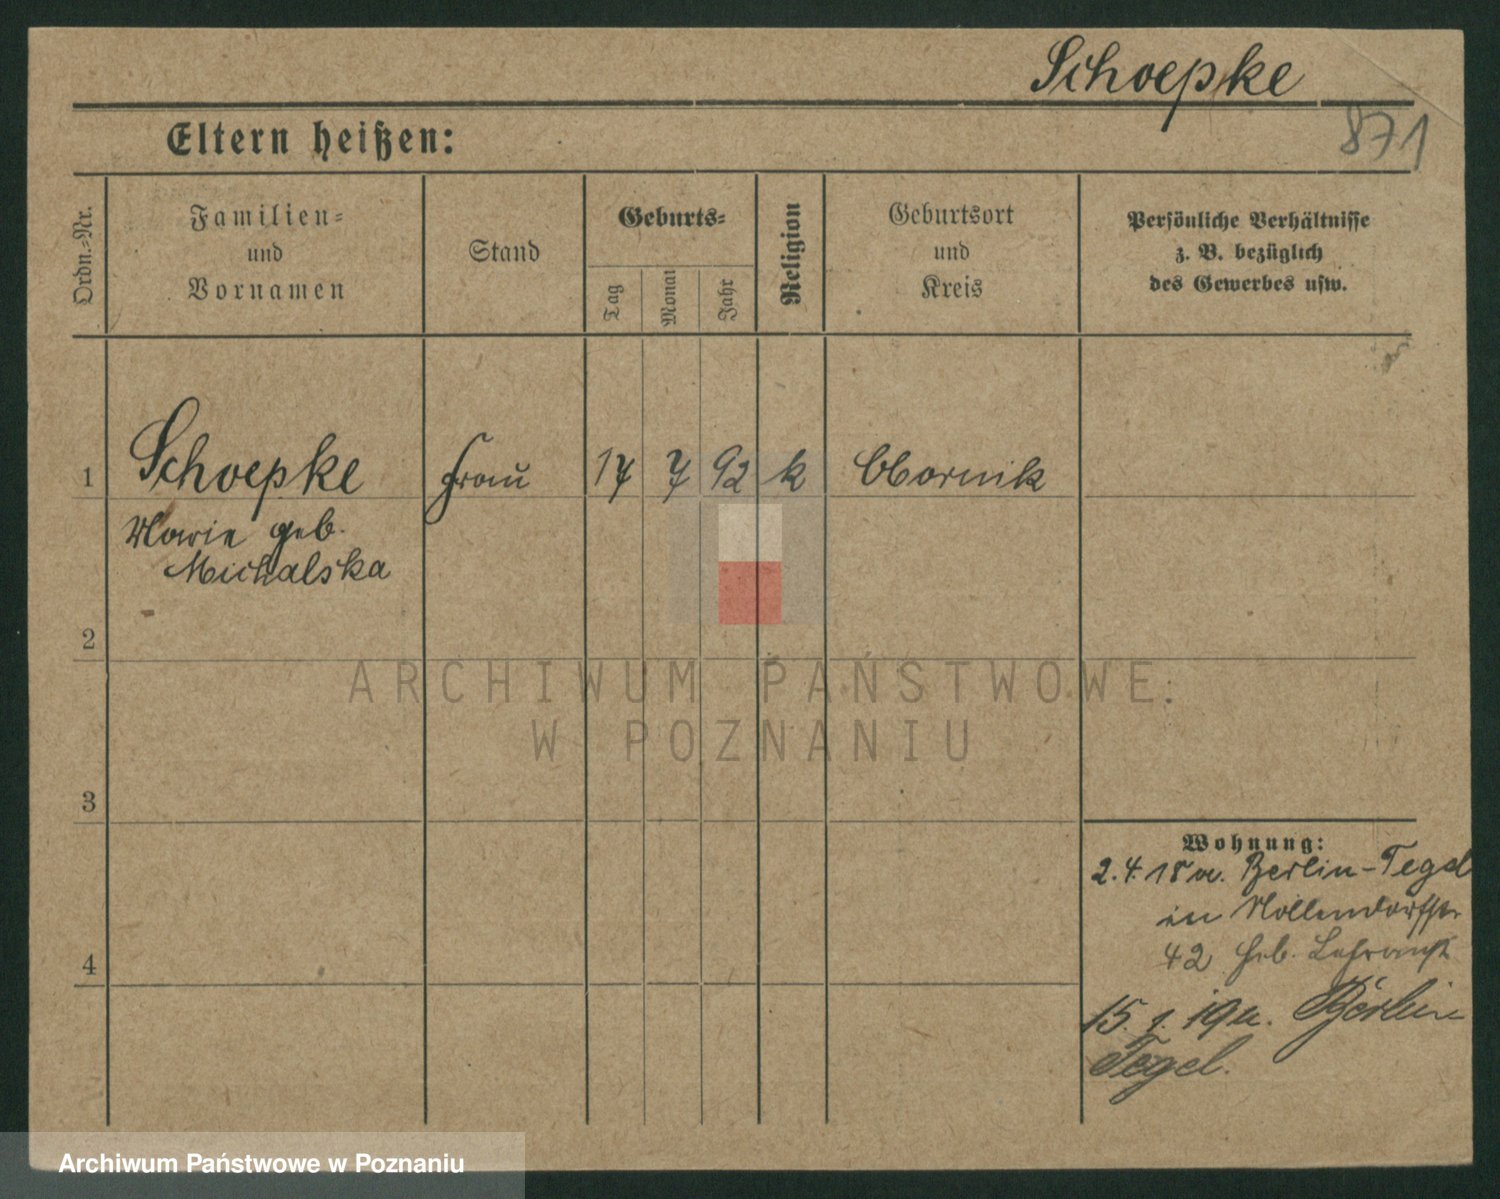 Schoepke
871
Eltern heißen:
Ordn.-Nr.
Familien-
und
Vornamen
Stand
Geburts-
Tag
Monat
Jahr
Religion
Geburtsort
und
Kreis
Persönliche Verhältnisse
z. B. bezüglich
des Gewerbes usw.
1
Schoepke
Frau
17
7
92
k
Obornik
Marie geb.
Michalska
2
3
4
ARCHIWUM PAŃSTWOWE
W POZNANIU
Wohnung:
2.4.18 a. Berlin-Tegel
in Nollendorfstr
42
15. 1. 19 a. Berlin
Tegel.
Archiwum Państwowe w Poznaniu